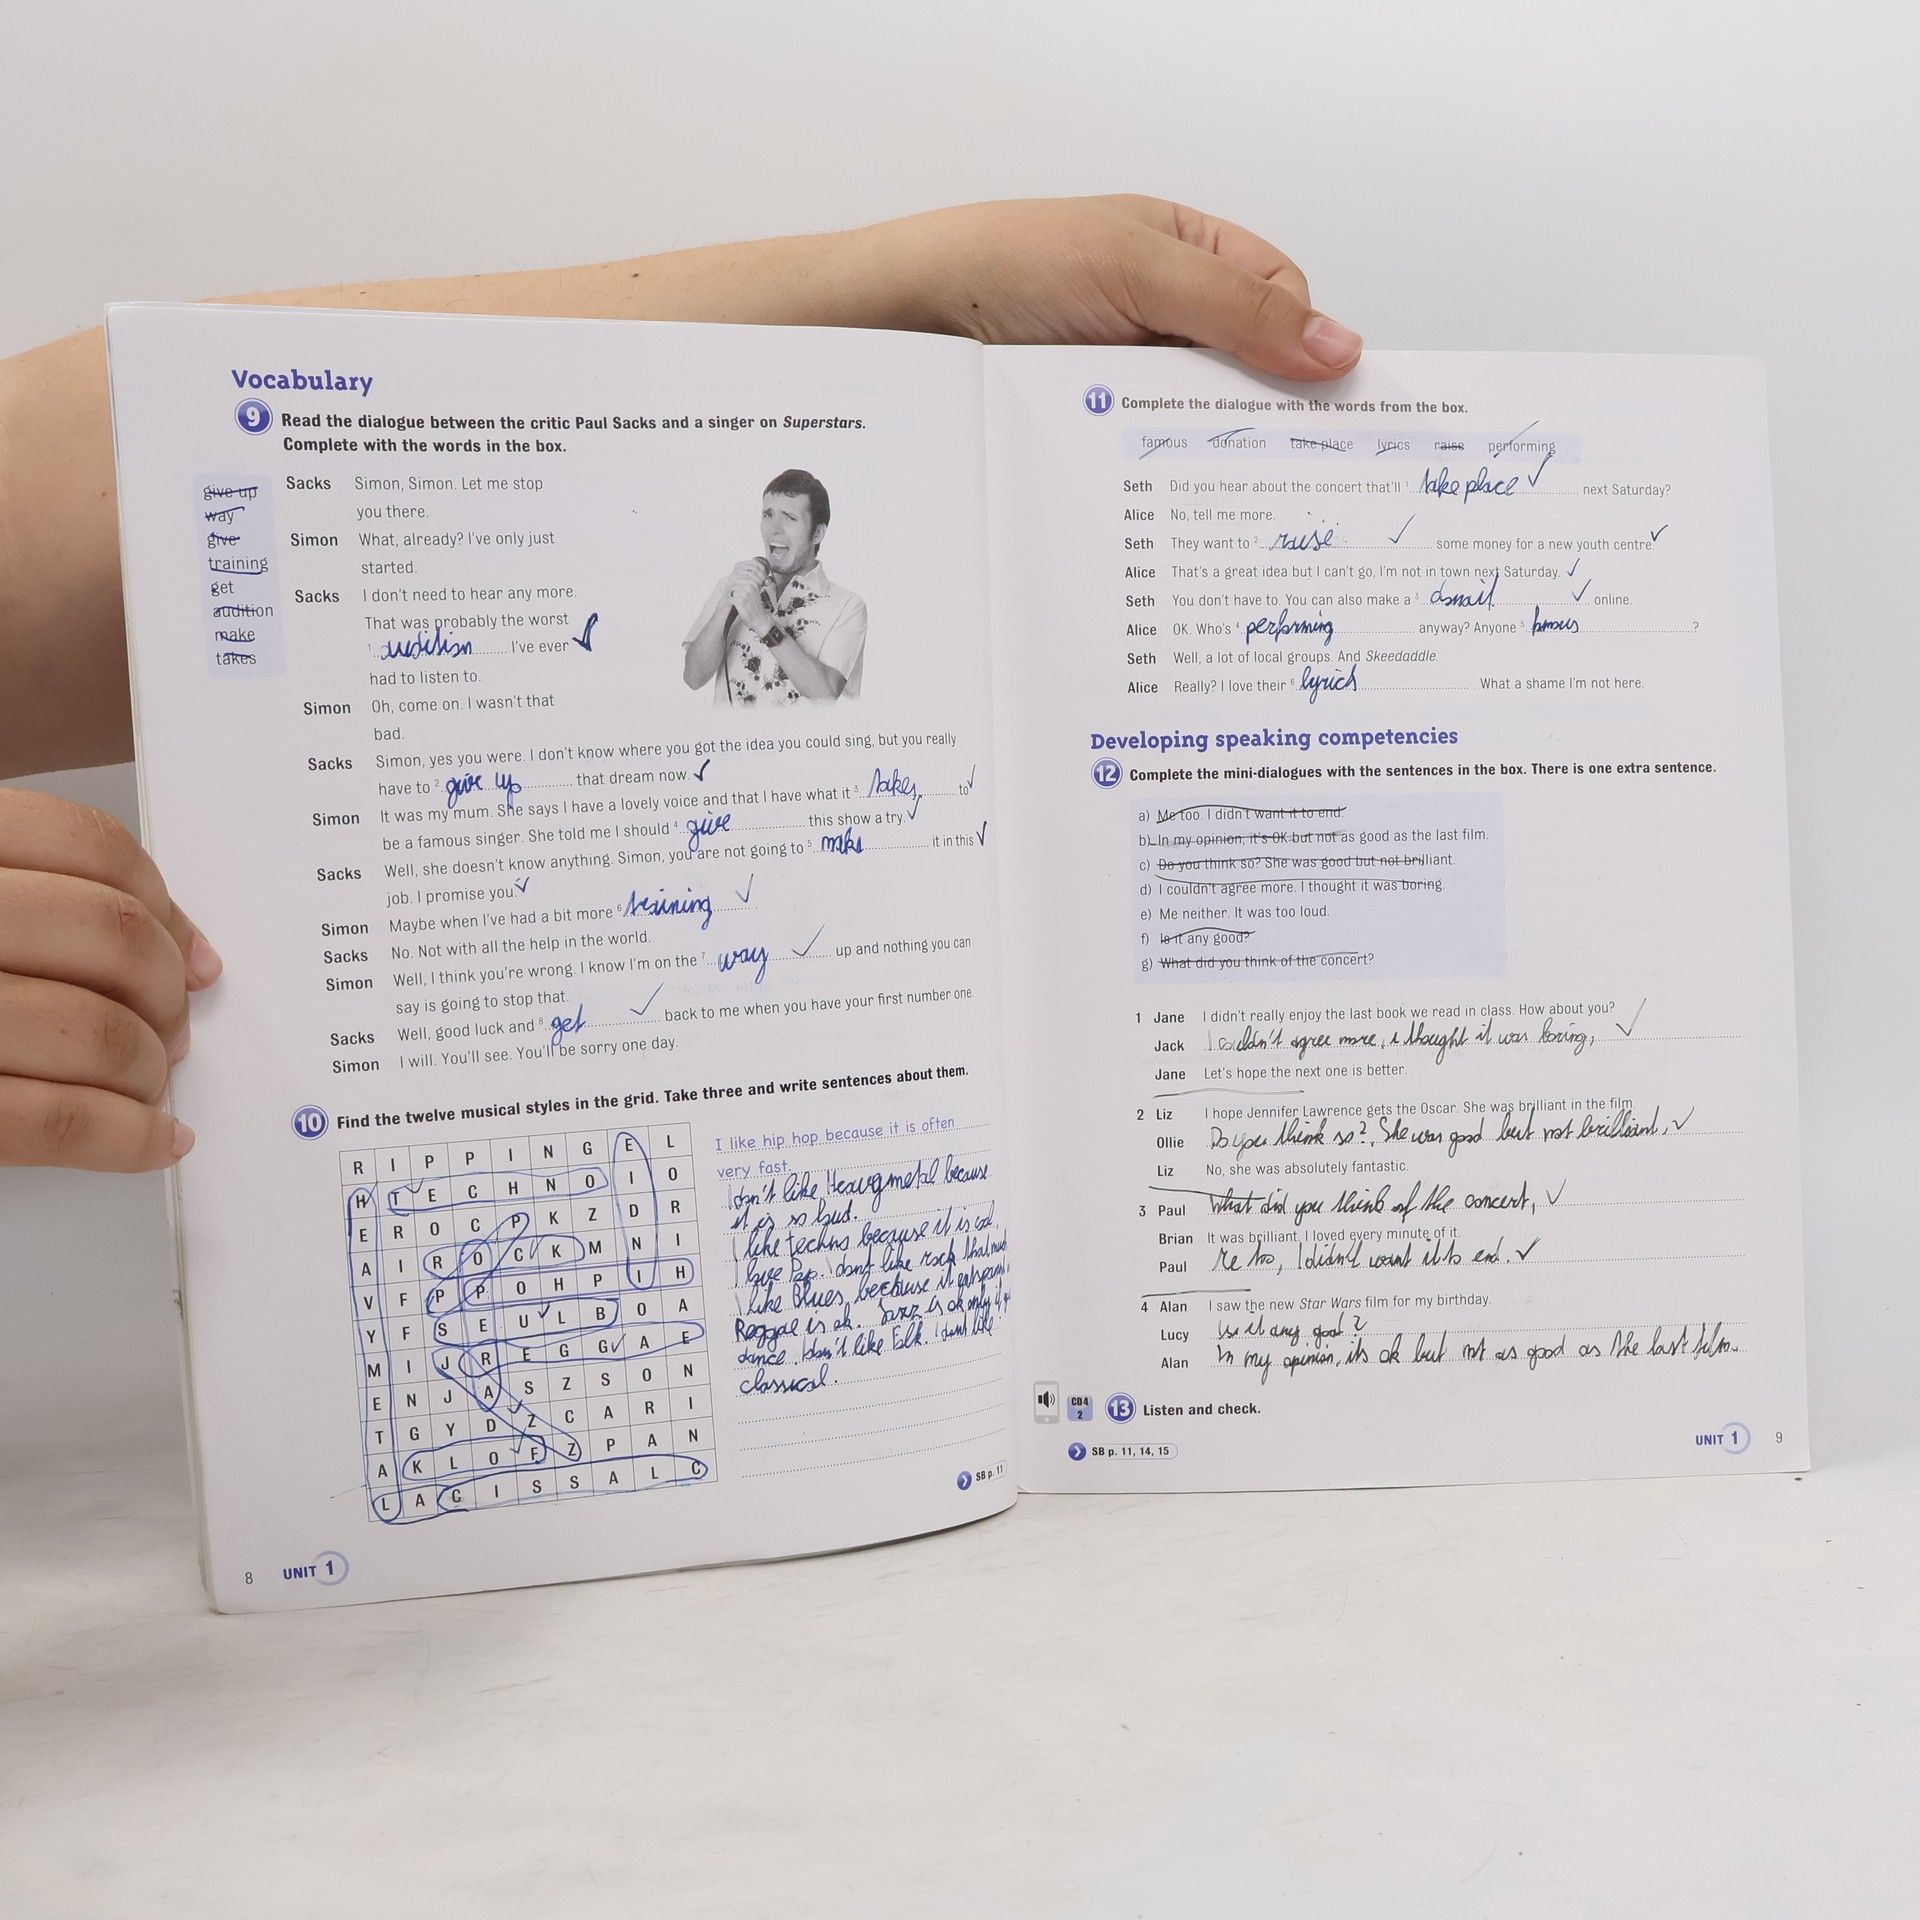 Vocabulary
9 Read the dialogue between the critic Paul Sacks and a singer on Superstars.
Complete with the words in the box.
give up
way
give
training
get
audition
make
takes
Sacks Simon, Simon. Let me stop
you there.
Simon What, already? I've only just
started.
Sacks I don't need to hear any more.
That was probably the worst
1 audition I've ever
had to listen to.
Simon Oh, come on. I wasn't that
bad.
Sacks Simon, yes you were. I don't know where you got the idea you could sing, but you really
have to 2 give up that dream now.
Simon It was my mum. She says I have a lovely voice and that I have what it 3 takes to
be a famous singer. She told me I should 4 give this show a try.
Sacks Well, she doesn't know anything. Simon, you are not going to 5 make it in this
job. I promise you.
Simon Maybe when I've had a bit more 6 training.
Sacks No. Not with all the help in the world.
Simon Well, I think you're wrong. I know I'm on the 7 way up and nothing you can
say is going to stop that.
Sacks Well, good luck and 8 get back to me when you have your first number one.
Simon I will. You'll see. You'll be sorry one day.
10 Find the twelve musical styles in the grid. Take three and write sentences about them.
R I P P I N G E L
H T E C H N O I O
E R O C P K Z D R
A I R O C K M N I
V F P P O H P I H
Y F S E U L B O A
M I J R E G G A E
E N J A S Z S O N
T G Y D Z C A R I
A K L O F Z P A N
L A C I S S A L C
I like hip hop because it is often
very fast.
I don't like Heavy metal because
it is so loud.
I like techno because it is cool.
I love Pop. I dont like rock that much
I like Blues, because it
Reggae is ok. Jazz is ok only if
dance. I don't like Folk. I dont like
classical.
SB p. 11
8 UNIT 1
11 Complete the dialogue with the words from the box.
famous donation take place lyrics raise performing
Seth Did you hear about the concert that'll 1 take place next Saturday?
Alice No, tell me more.
Seth They want to 2 raise some money for a new youth centre.
Alice That's a great idea but I can't go, I'm not in town next Saturday.
Seth You don't have to. You can also make a 3 online.
Alice OK. Who's 4 performing anyway? Anyone 5 famous ?
Seth Well, a lot of local groups. And Skeedaddle.
Alice Really? I love their 6 lyrics . What a shame I'm not here.
Developing speaking competencies
12 Complete the mini-dialogues with the sentences in the box. There is one extra sentence.
a) Me too. I didn't want it to end.
b) In my opinion, it's OK but not as good as the last film.
c) Do you think so? She was good but not brilliant.
d) I couldn't agree more. I thought it was boring.
e) Me neither. It was too loud.
f) Is it any good?
g) What did you think of the concert?
1 Jane I didn't really enjoy the last book we read in class. How about you?
Jack I couldn't agree more, i thought it was boring,
Jane Let's hope the next one is better.
2 Liz I hope Jennifer Lawrence gets the Oscar. She was brilliant in the film.
Ollie Do you think so?, She was good but not brilliant,
Liz No, she was absolutely fantastic.
3 Paul What did you think of the concert,
Brian It was brilliant. I loved every minute of it.
Paul Me too, I didn't want it to end.
4 Alan I saw the new Star Wars film for my birthday.
Lucy is it any good?
Alan In my opinion, its ok but not as good as the last film.
CD4
2
13 Listen and check.
SB p. 11, 14, 15
UNIT 1 9